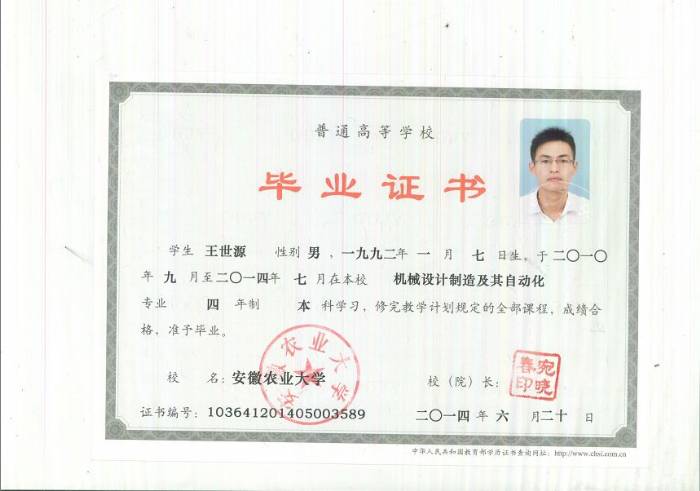 普通高等学校
毕业证书
学生 王世源 性别 男，一九九二年 一 月 七 日生，于二〇一〇
年 九 月至二〇一四年 七 月在本校 机械设计制造及其自动化
专业 四 年制 本 科学习，修完教学计划规定的全部课程，成绩合
格，准予毕业。
安徽农业大学
校 名：安徽农业大学 校（院）长：
宛晓
春印
证书编号：103641201405003589 二〇一四 年 六 月二十 日
中华人民共和国教育部学历证书查询网址：http://www.chsi.com.cn